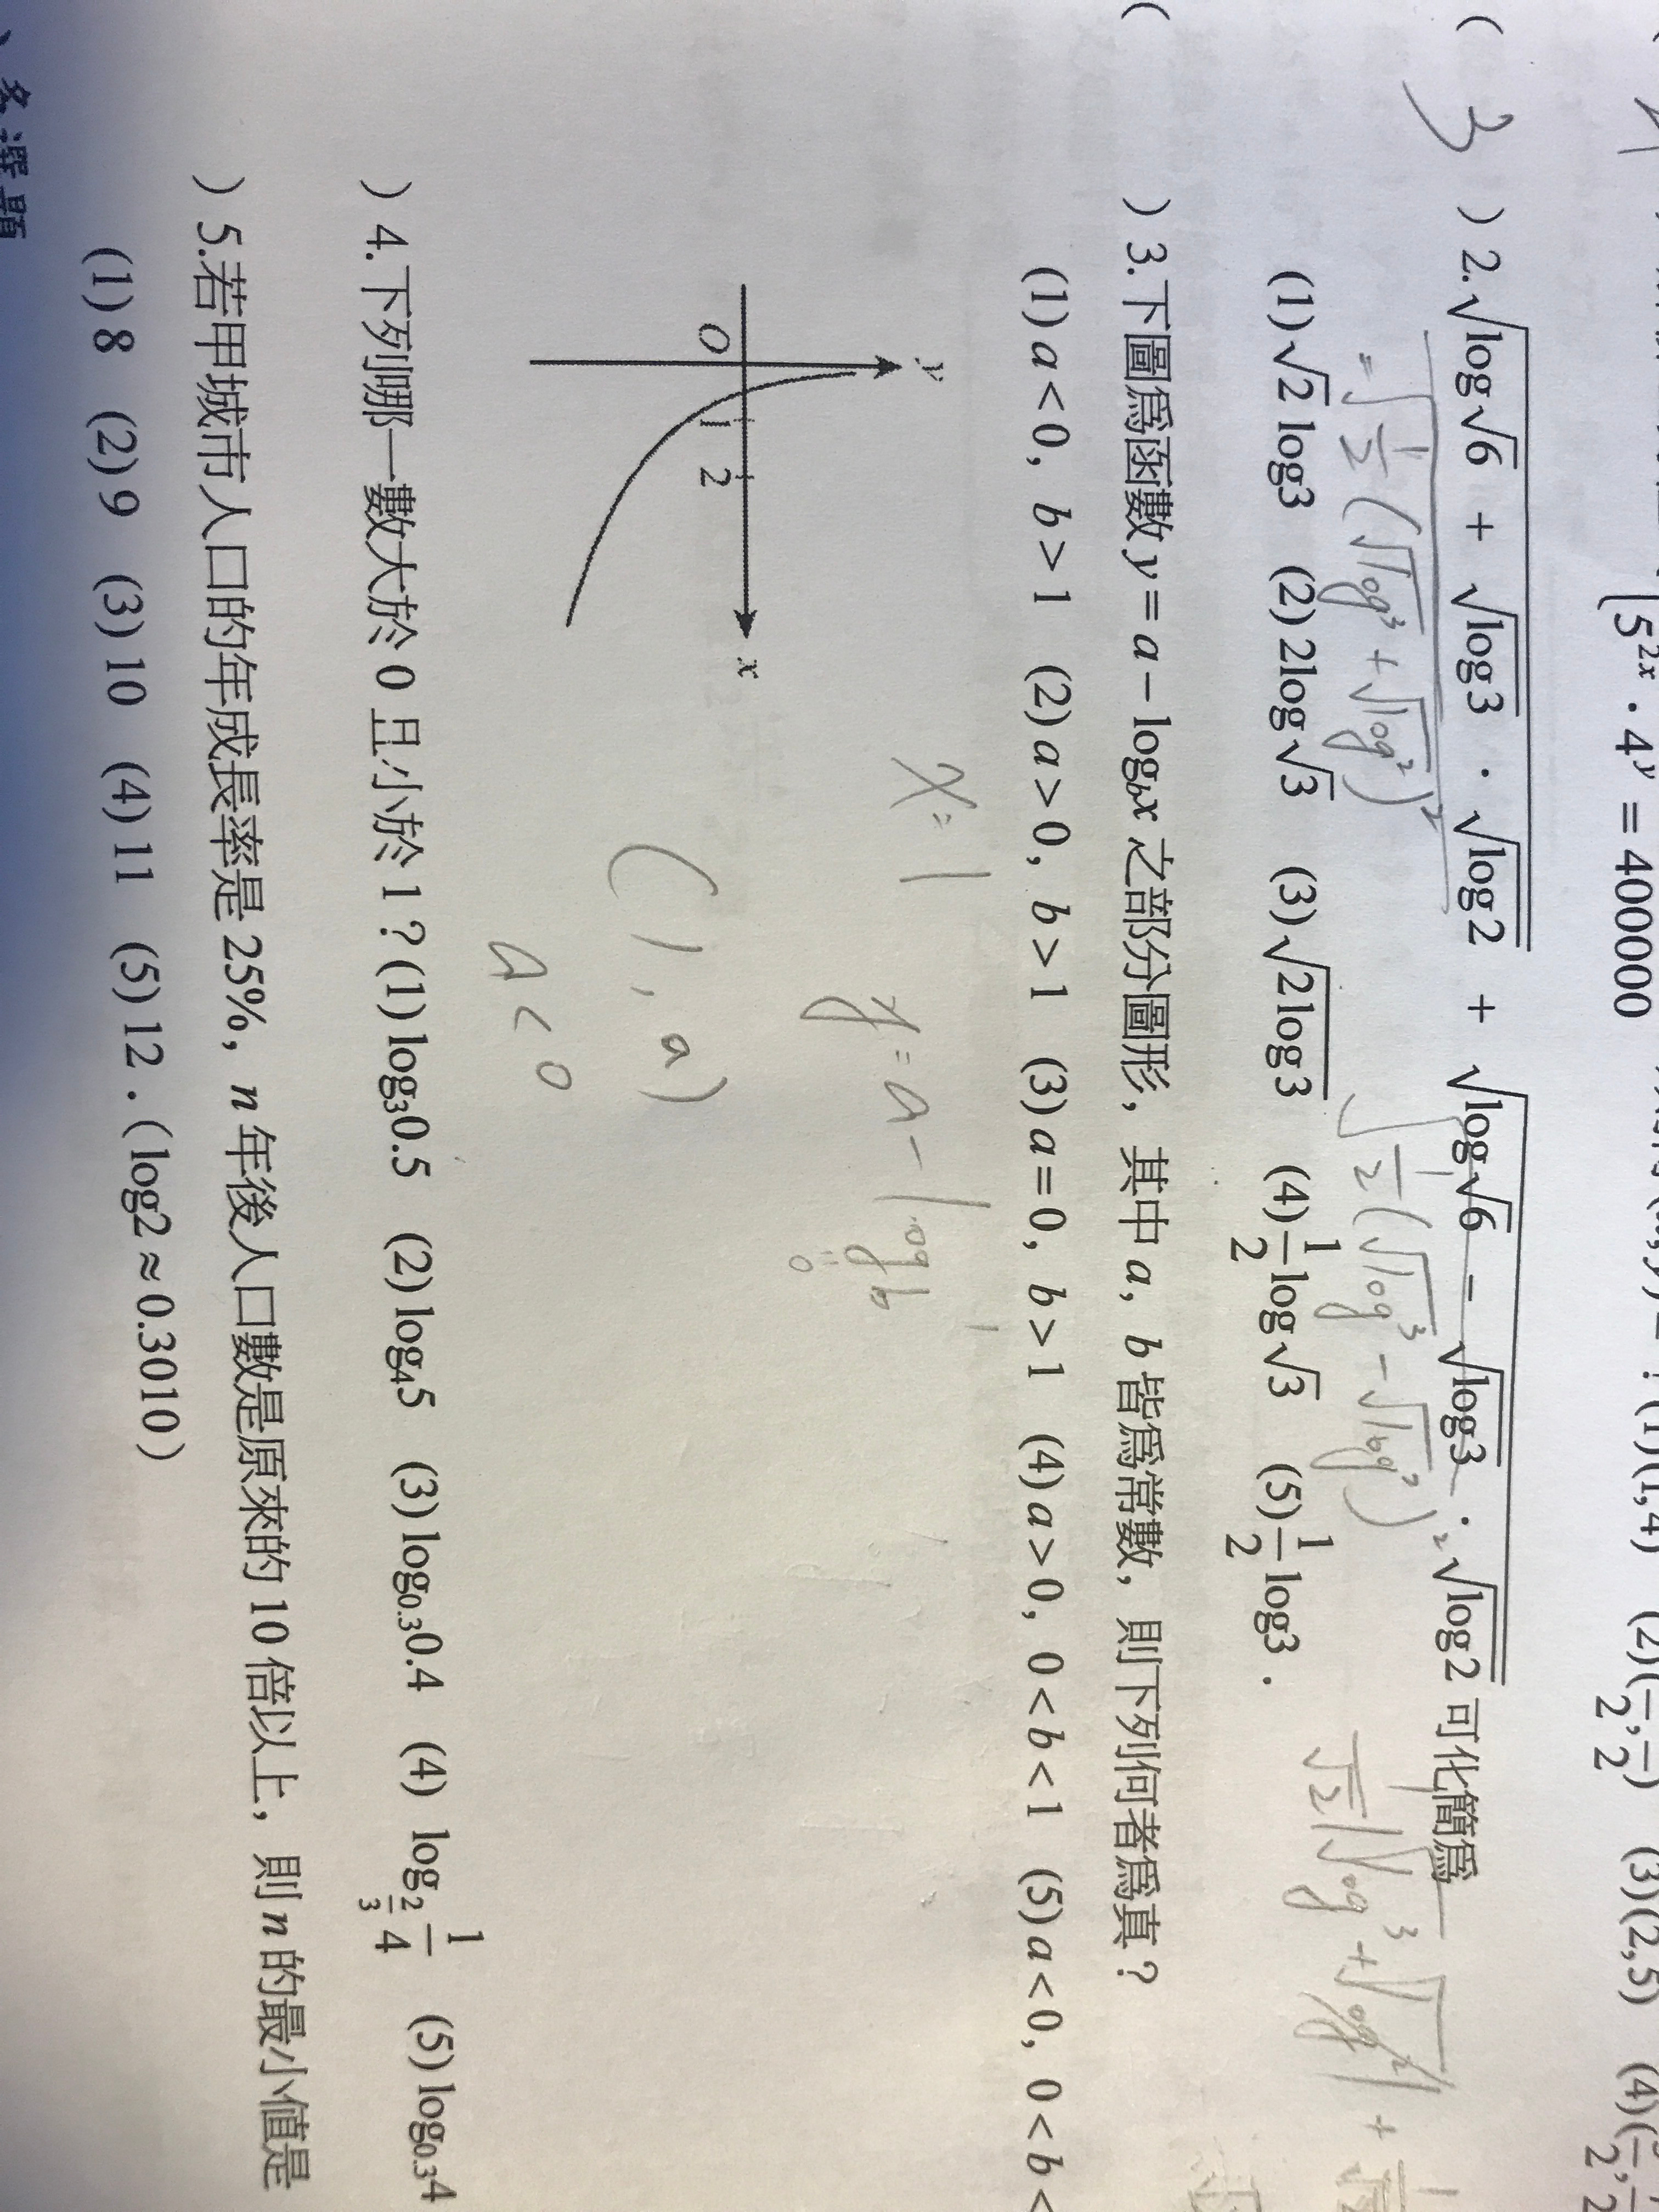 5^{2x} · 4^y = 400000 (1)(1,4) (2) (3)(2,5) (4)
( 3 ) 2. √(log√6 + √log3 · √log2) + √(log√6 − √log3 · √log2) 可化簡爲
= √(1/2 (√log3 + √log2)²) √(1/2 (√log3 − √log2)²)
(1) √2 log3 (2) 2log√3 (3) √(2log3) (4) 1/2 log√3 (5) 1/2 log3 .
1/√2 |√log3 + √log2| +
( ) 3.下圖爲函數 y = a − log_b x 之部分圖形, 其中 a, b 皆爲常數, 則下列何者爲真?
(1) a < 0, b > 1 (2) a > 0, b > 1 (3) a = 0, b > 1 (4) a > 0, 0 < b < 1 (5) a < 0, 0 < b <
x = 1
y = a − log_b 1
= 0
y
O 1 2 x
(1, a)
a < 0
) 4.下列哪一數大於 0 且小於 1 ? (1) log₃0.5 (2) log₄5 (3) log₀.₃0.4 (4) log_{2/3} 1/4 (5) log₀.₃4
) 5.若甲城市人口的年成長率是 25%, n 年後人口數是原來的 10 倍以上, 則 n 的最小值是
(1) 8 (2) 9 (3) 10 (4) 11 (5) 12 . ( log2 ≈ 0.3010 )
多選題